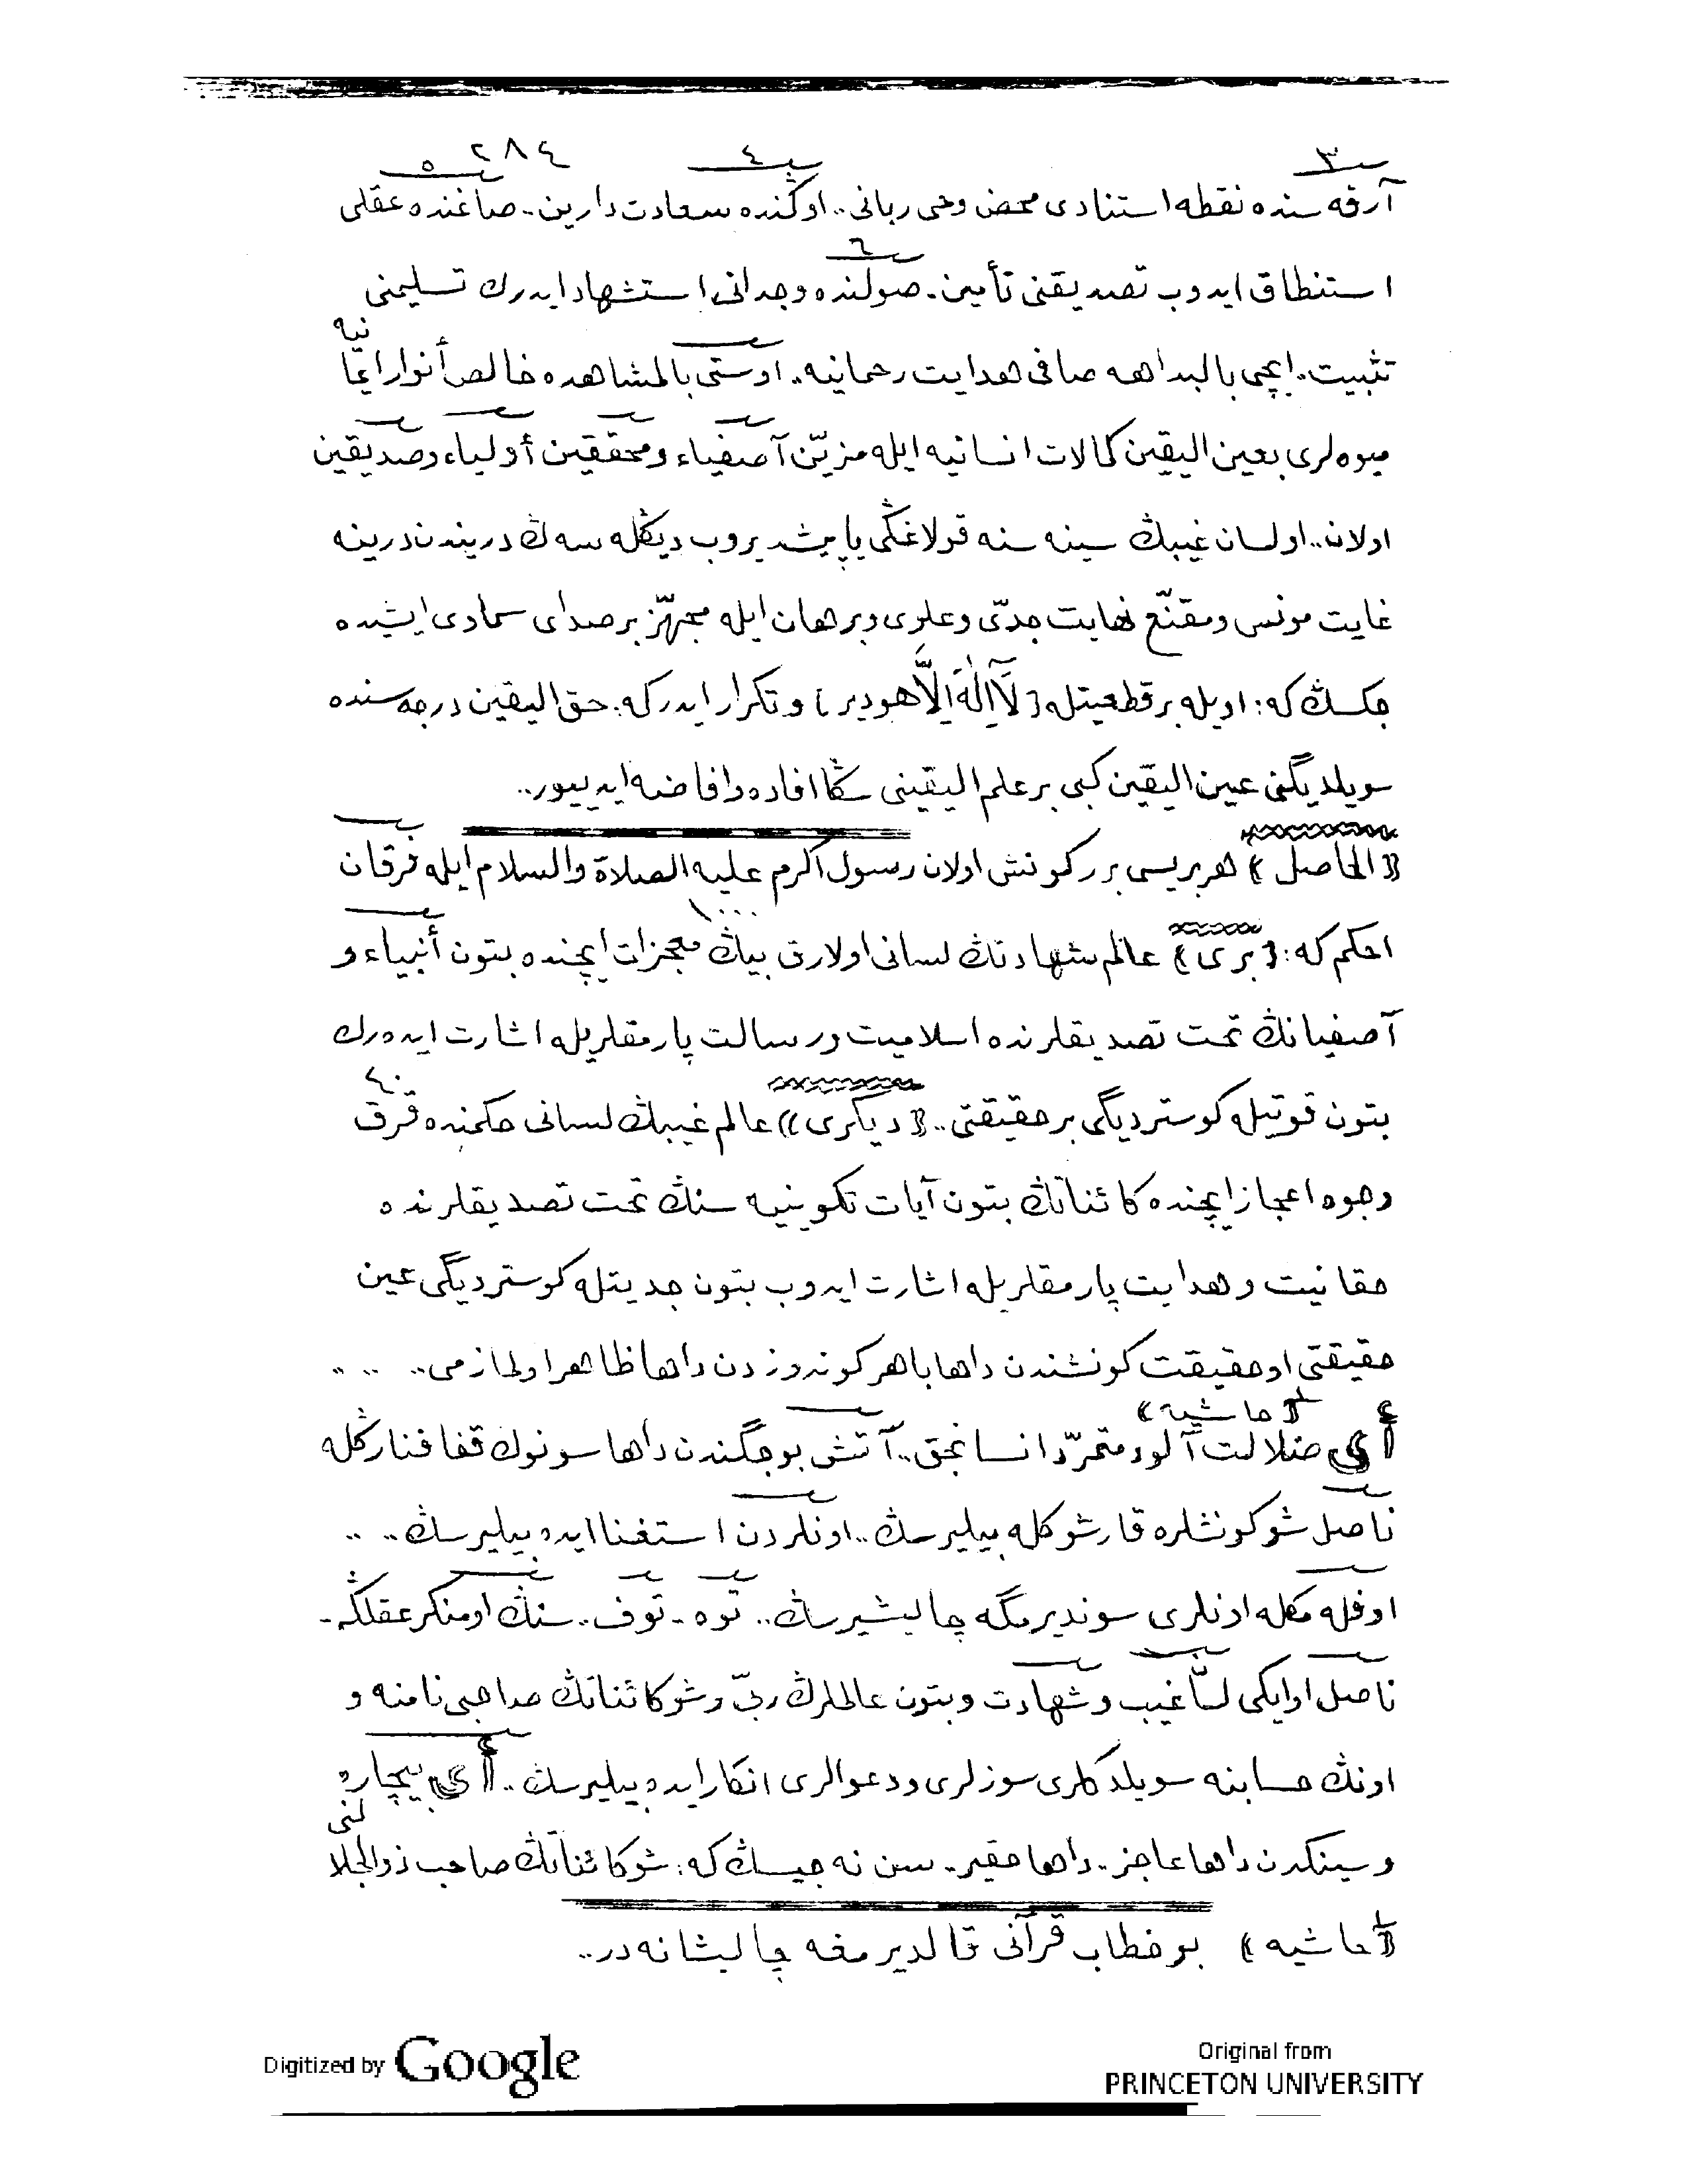 ٢٨٤
٣ ٤ ٥
آرقه سنده نقطه استنادى محض وحى ربانى.. اوڭنده سعادت دارين.. صاغنده عقلى
٦
استنطاق ايدوب تصديقنى تأمين.. صولنده وجدانى استشهاد ايدرك تسليمنى
تثبيت.. ايچى بالبداهه صافى هدايت رحمانيه.. اوستى بالمشاهده خالص أنوار ايمانيه
ميوه لرى بعين اليقين كمالات انسانيه ايله مزيّن آصفياء ومحققين أولياء وصديقين
اولان.. او لسان غيبڭ سينه سنه قولاغڭى ياپيشديروب ديڭله سه ڭ دريندن درينه
غايت مونس ومقنّع نهايت جدّى وعلوى وبرهان ايله مجهّز بر صداى سماوى ايشيده
جكسڭ كه: اويله بر قطعيتله ﴿لَآ اِلٰهَ اِلَّا هو دير﴾ و تكرار ايدر كه: حق اليقين درجه سنده
سويلديگنى عين اليقين كبى بر علم اليقينى سڭا افاده وافاضه ايدييور..
﴿الحاصل﴾ هر بريسى بر ر كونش اولان رسول اكرم عليه الصلاة والسلام ايله فرقان
١٠٠٠
احكم كه: ﴿برى﴾ عالم شهادتڭ لسانى اولارق بيڭ معجزات ايچنده بتون أنبياء و
آصفيانڭ تحت تصديقلرنده اسلاميت ورسالت پارمقلريله اشارت ايده رك
٤٠
بتون قوتيله كوسترديگى بر حقيقتى.. ﴿ديگرى﴾ عالم غيبڭ لسانى حكمنده قرق
وجوه اعجاز ايچنده كائناتڭ بتون آيات تكوينيه سنڭ تحت تصديقلرنده
حقانيت و هدايت پارمقلريله اشارت ايدوب بتون جديتله كوسترديگى عين
حقيقتى او حقيقت كونشدن داها باهر كوندوزدن داها ظاهر اولمازمى.. .. ..
﴿حاشيه﴾
أى ضلالت آلود متمرّد انسانجق.. آتش بوجگندن داها سونوك قفا فنارڭله
ناصل شو كونشلره قارشو كله بيليرسڭ.. اونلردن استغنا ايده بيليرسڭ.. ..
اوفله مكله اونلرى سونديرمگه چاليشيرسڭ.. توه - توف.. سنڭ او منكر عقلڭه -
ناصل او ايكى لسان غيب وشهادت وبتون عالملرڭ ربّى وشو كائناتڭ صاحبى نامنه و
اونڭ حسابنه سويلدكلرى سوزلرى ودعوالرى انكار ايده بيليرسڭ.. أى بيچاره
وسينكدن داها عاجز.. داها حقير.. سن نه جيسڭ كه: شو كائناتڭ صاحب ذوالجلالنى
﴿حاشيه﴾ بو خطاب قرآنى قالديرمغه چاليشانه در..
Digitized by Google
Original from
PRINCETON UNIVERSITY